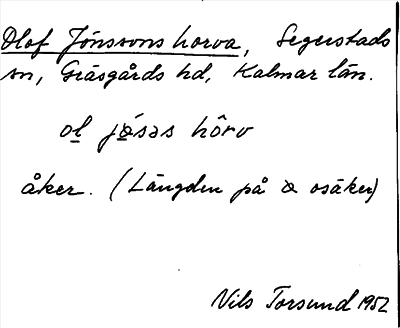 Olof Jönssons horva, Segerstads
sn, Gräsgårds hd, Kalmar län.
ol jɑ́səs hôrv
åker. (Längden på ɑ osäker)
Nils Torsund 1952